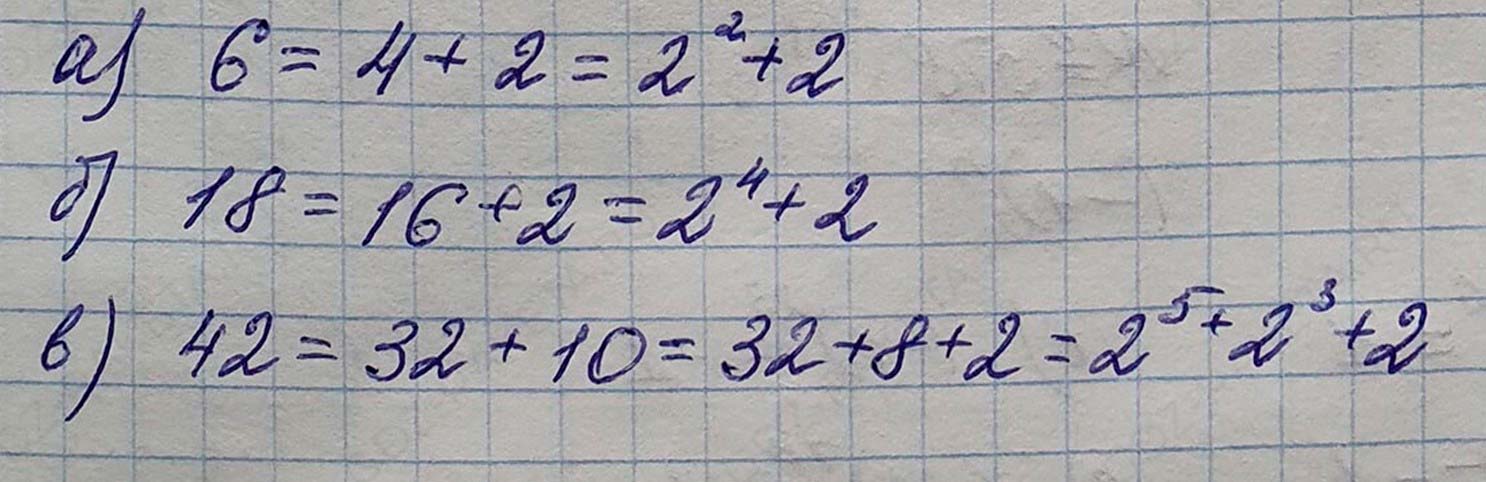 а) 6 = 4 + 2 = 2² + 2
б) 18 = 16 + 2 = 2⁴ + 2
в) 42 = 32 + 10 = 32 + 8 + 2 = 2⁵ + 2³ + 2